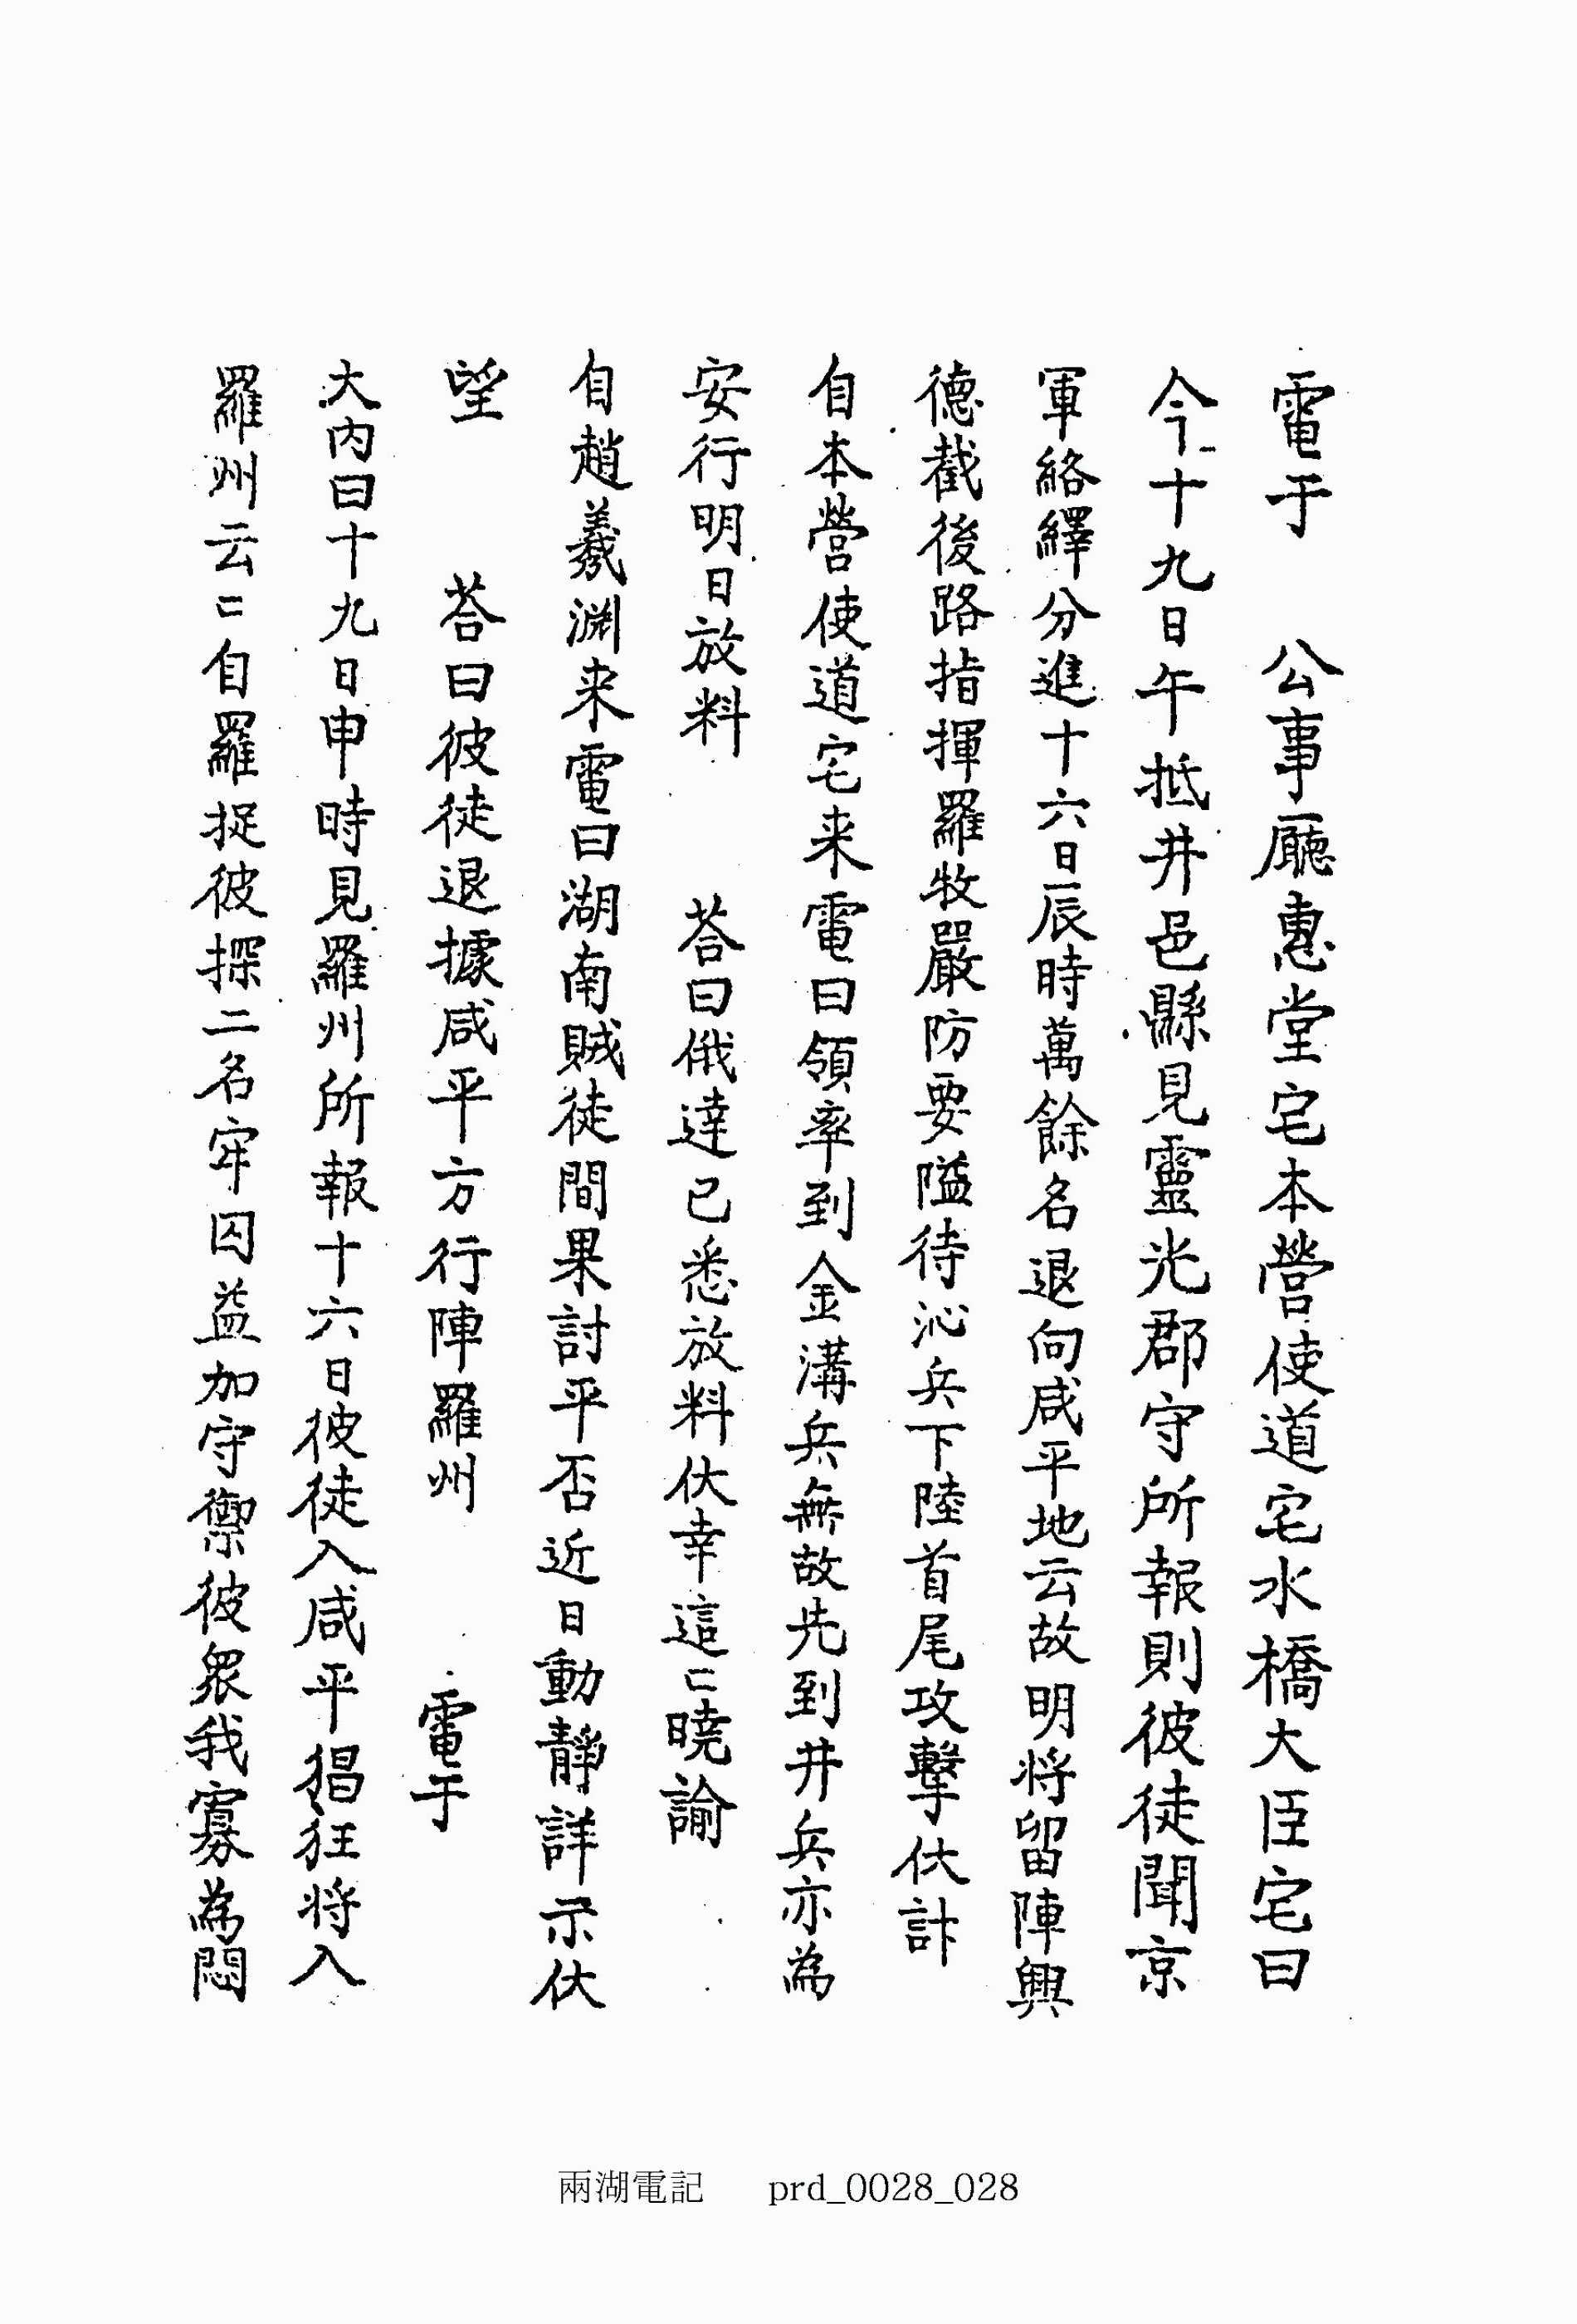 電于　公事廳惠堂宅本營使道宅水橋大臣宅曰
今十九日午抵井邑縣見靈光郡守所報則彼徒聞京
軍絡繹分進十六日辰時萬餘名退向咸平地云故明将留陣興
德截後路指揮羅牧嚴防要隘待沁兵下陸首尾攻擊伏計
自本營使道宅来電曰領率到金溝兵無故先到井兵亦為
安行明日放料　荅曰俄達已悉放料伏幸這〻曉諭
自趙羲淵来電曰湖南賊徒間果討平否近日動靜詳示伏
望　荅曰彼徒退據咸平方行陣羅州　電于
大内曰十九日申時見羅州所報十六日彼徒入咸平猖狂将入
羅州云〻自羅捉彼探二名牢囚益加守禦彼衆我寡為悶
兩湖電記　prd_0028_028